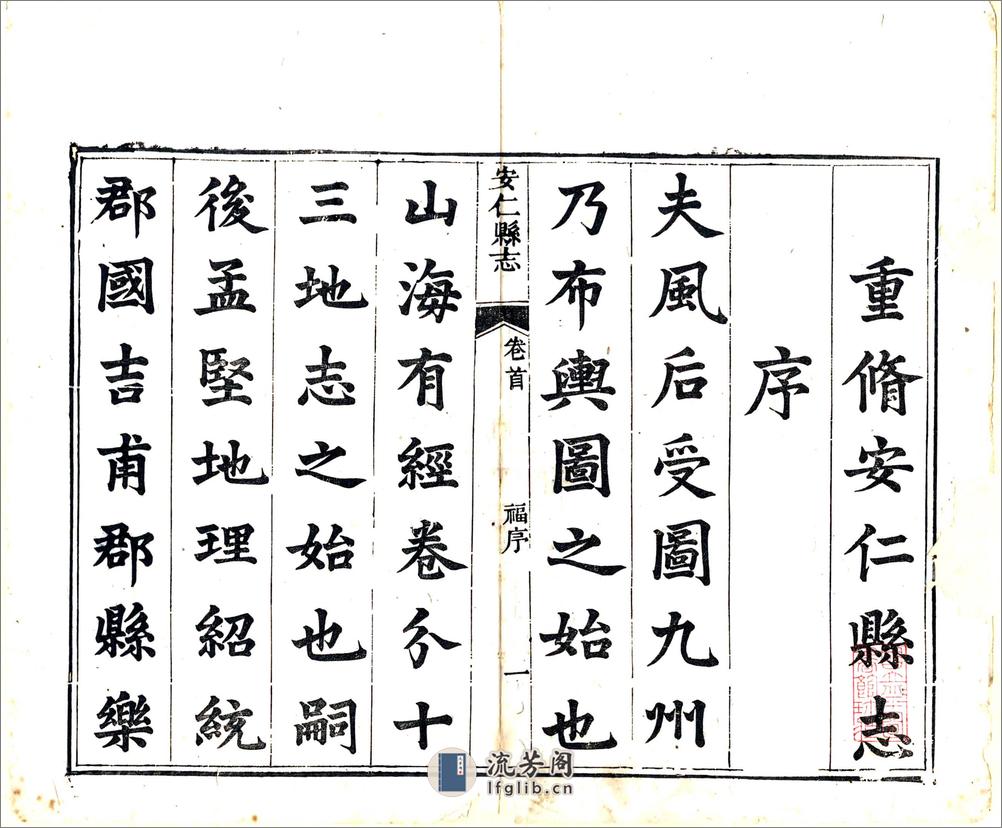 重脩安仁縣志
序
夫風后受圖九州
乃布輿圖之始也
安仁縣志
卷首
福序
一
山海有經卷分十
三地志之始也嗣
後孟堅地理紹統
郡國吉甫郡縣樂
流芳阁
lfglib.cn